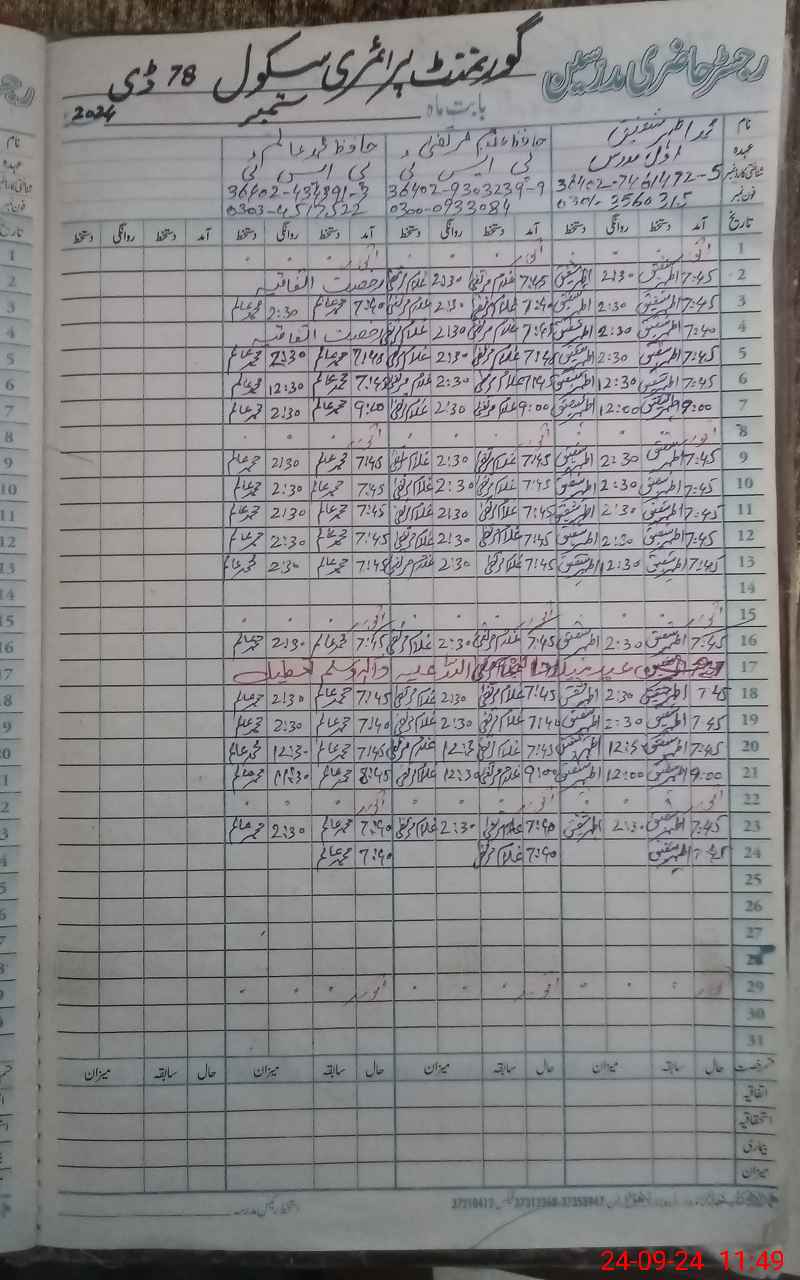 رجسٹر حاضری مدرسین گورنمنٹ پرائمری سکول 78 ڈی
بابت ماہ ستمبر 2024
نام محمد اطہر شفیق حافظ غلام مرتضیٰ حافظ محمد عالم
عہدہ اول مدرس پی ایس ٹی پی ایس ٹی
36402-7461472-5 36402-9303239-9
فون نمبر 0300-0933084 0303-4517522
تاریخ آمد دستخط روانگی دستخط آمد دستخط روانگی دستخط آمد دستخط روانگی دستخط آمد دستخط روانگی دستخط
1 اتوار اتوار اتوار
2 7:45 اطہر شفیق 2:30 اطہر شفیق 7:45 غلام مرتضیٰ 2:30 غلام مرتضیٰ رخصت اتفاقیہ
3 7:45 اطہر شفیق 2:30 اطہر شفیق 7:40 غلام مرتضیٰ 2:30 غلام مرتضیٰ 7:40 محمد عالم 2:30 محمد عالم
4 7:40 اطہر شفیق 2:30 اطہر شفیق 7:45 غلام مرتضیٰ 2:30 غلام مرتضیٰ رخصت اتفاقیہ
5 7:45 اطہر شفیق 2:30 اطہر شفیق 7:45 غلام مرتضیٰ 2:30 غلام مرتضیٰ 7:45 محمد عالم 2:30 محمد عالم
6 7:45 اطہر شفیق 12:30 اطہر شفیق 7:45 غلام مرتضیٰ 2:30 غلام مرتضیٰ 7:45 محمد عالم 12:30 محمد عالم
7 9:00 اطہر شفیق 12:00 اطہر شفیق 9:00 غلام مرتضیٰ 2:30 غلام مرتضیٰ 9:00 محمد عالم 2:30 محمد عالم
8 اتوار اتوار اتوار
9 7:45 اطہر شفیق 2:30 اطہر شفیق 7:45 غلام مرتضیٰ 2:30 غلام مرتضیٰ 7:45 محمد عالم 2:30 محمد عالم
10 7:45 اطہر شفیق 2:30 اطہر شفیق 7:45 غلام مرتضیٰ 2:30 غلام مرتضیٰ 7:45 محمد عالم 2:30 محمد عالم
11 7:45 اطہر شفیق 2:30 اطہر شفیق 7:45 غلام مرتضیٰ 2:30 غلام مرتضیٰ 7:45 محمد عالم 2:30 محمد عالم
12 7:45 اطہر شفیق 2:30 اطہر شفیق 7:45 غلام مرتضیٰ 2:30 غلام مرتضیٰ 7:45 محمد عالم 2:30 محمد عالم
13 7:45 اطہر شفیق 12:30 اطہر شفیق 7:45 غلام مرتضیٰ 2:30 غلام مرتضیٰ 7:45 محمد عالم 2:30 محمد عالم
14
15 اتوار اتوار اتوار
16 7:45 اطہر شفیق 2:30 اطہر شفیق 7:45 غلام مرتضیٰ 2:30 غلام مرتضیٰ 7:45 محمد عالم 2:30 محمد عالم
17 عید میلاد النبی صلی اللہ علیہ وآلہ وسلم تعطیل
18 7:45 اطہر شفیق 2:30 اطہر شفیق 7:45 غلام مرتضیٰ 2:30 غلام مرتضیٰ 7:45 محمد عالم 2:30 محمد عالم
19 7:45 اطہر شفیق 2:30 اطہر شفیق 7:40 غلام مرتضیٰ 2:30 غلام مرتضیٰ 7:40 محمد عالم 2:30 محمد عالم
20 7:45 اطہر شفیق اطہر شفیق 7:45 غلام مرتضیٰ 12:30 غلام مرتضیٰ 7:45 محمد عالم 12:30 محمد عالم
21 9:00 اطہر شفیق 12:00 اطہر شفیق 9:00 غلام مرتضیٰ 12:30 غلام مرتضیٰ 8:45 محمد عالم محمد عالم
22 اتوار اتوار اتوار
23 7:45 اطہر شفیق 2:30 اطہر شفیق 7:40 غلام مرتضیٰ 2:30 غلام مرتضیٰ 7:40 محمد عالم 2:30 محمد عالم
24 7:45 اطہر شفیق 7:40 غلام مرتضیٰ 7:40 محمد عالم
25
26
27
28
29 اتوار اتوار اتوار
30
31
رخصت حال سابقہ میزان حال سابقہ میزان حال سابقہ میزان حال سابقہ میزان
اتفاقیہ
استحقاقیہ
بیماری
میزان
24-09-24 11:49